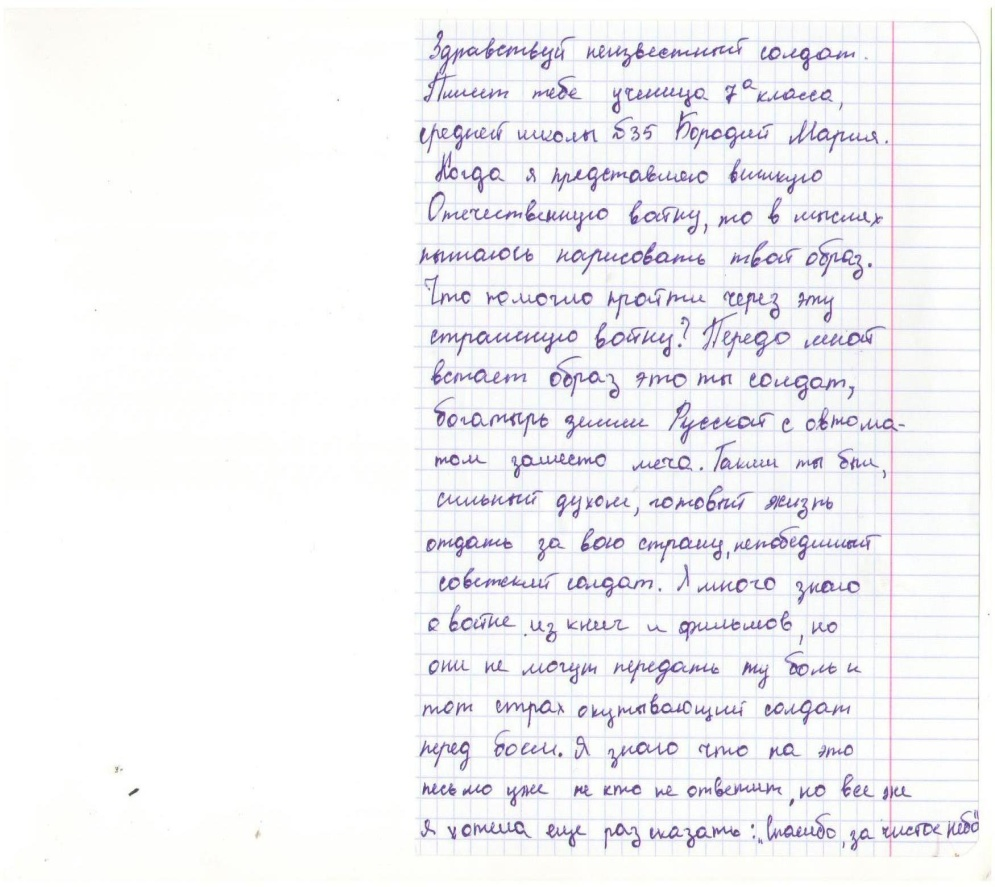 Здравствуй неизвестный солдат.
Пишет тебе ученица 7а класса,
средней школы №35 Бородий Мария.
Когда я представляю виликую
Отечественную войну, то в мыслях
пытаюсь нарисовать твой образ.
Что помогло пройти через эту
страшную войну? Передо мной
встает образ это ты солдат,
богатырь земли Русской с автома-
том заместо меча. Таким ты был,
сильный духом, готовый жизнь
отдать за вою страну, непобедимый
советский солдат. Я много знаю
о войне из книг и фильмов, но
они не могут передать ту боль и
тот страх окутывающий солдат
перед боем. Я знаю что на это
письмо уже не кто не ответит, но все же
я хотела еще раз сказать: „Спасибо, за чистое небо"